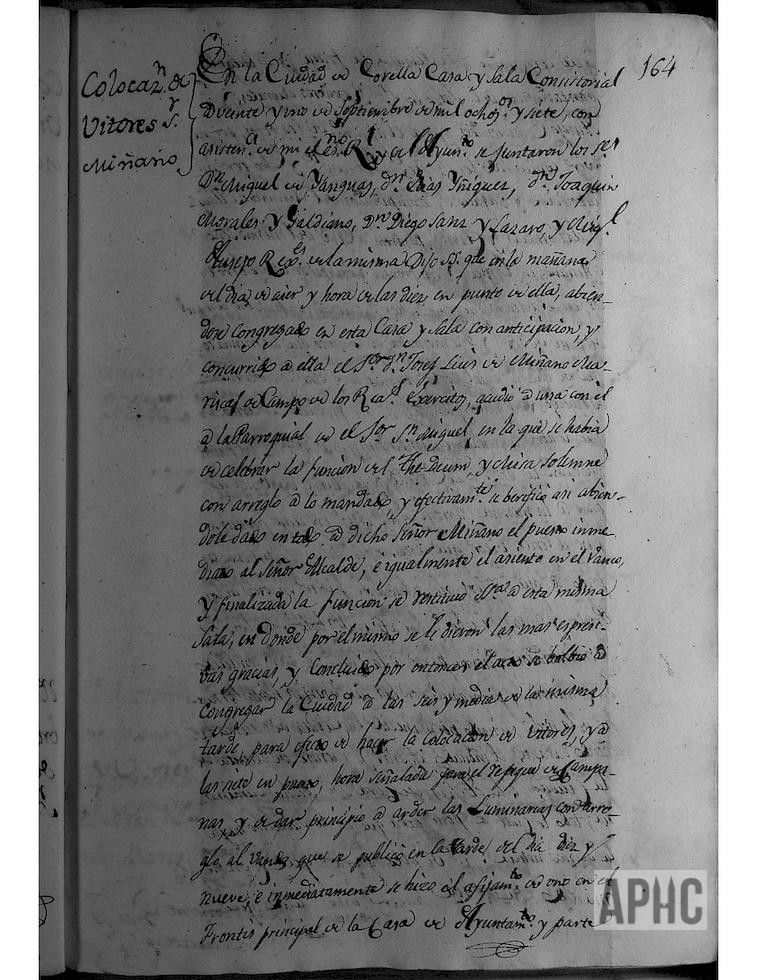 164
Colocaz.n de
Vitores S.r
Miñano
En la Ciudad de Corella Casa y Sala Consistorial
a veinte y uno de Septiembre de mil ochoz.os y siete, con
asisten.a de mi el es.no R.l y del Ayun.to se juntaron los S.es
D.n Miguel de Yanguas, d.n Blas Yñiguez, d.n Joaquin
Morales y Galdiano, D.n Diego Sanz y Lazaro, y Mig.l
Resp.s de la misma Dijo SS. que en la mañana
del dia de aier y hora de las diez en punto de ella, abien-
dose congregado en esta Casa y Sala con anticipacion, y
concurrido a ella el S.or d.n Josef Luis de Miñano Ma-
riscal de Campo de los Rea.s Exercitos, acudio a una con el
a la Parroquial de el S.or S.n Miguel, en la que se habia
de celebrar la funcion del The-Deum, y Misa Solemne
con arreglo a lo mandado, y efectivam.te se berifico asi abien-
dole dado en todo a dicho Señor Miñano el puesto inme-
diato al Señor Alcalde, e igualmente el asiento en el Vanco,
y finalizada la funcion se restituió a esta misma
Sala, en donde por el mismo se le dieron las mas expresi-
vas gracias, y Concluido por entonces el acto se bolbio a
congregar la Ciudad a las seis y media de la misma
tarde, para efecto de hacer la colocacion de Vitores, y a
las siete en punto, hora señalada para el repique de Campa-
nas, y de dar principio a arder las Luminarias con arre-
glo al Vando que se publico en la tarde del dia diez y
nueve, e inmediatamente se hizo el afijam.to de uno en el
Frontis principal de la Casa de Ayuntam.to y parte
APHC